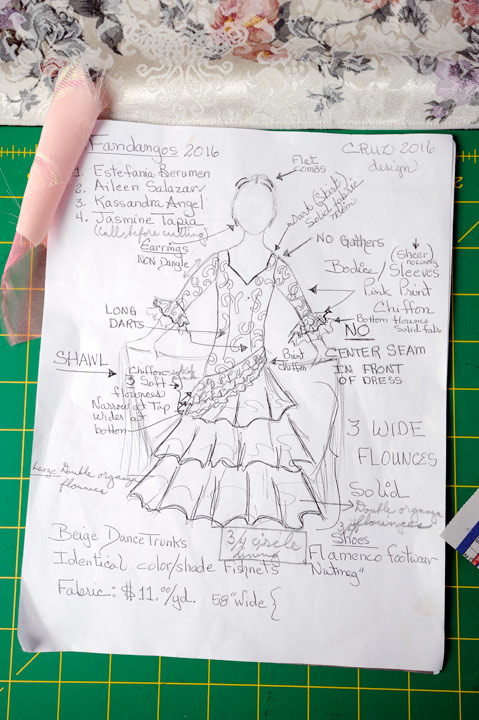 Fandangos 2016
CRUZ 2016
design
1. Estefania Berumen
2. Aileen Salazar
3. Kassandra Angel
4. Jasmine Tapia
(Call before cutting)
Flat
combs
Dark (Skirt)
Solid fabric
Earrings
NON Dangle
NO Gathers
Bodice/
(sheer)
no lining
Sleeves
Pink Print
Chiffon
Bottom flounce
Solid fabr
LONG
DARTS
NO
CENTER SEAM
IN FRONT
OF DRESS
Print
Chiffon
SHAWL
Chiffon
3 Soft
flounces
Narrow at Top
wider at
bottom
3 WIDE
FLOUNCES
Large Double organza
flounces
Solid
Double organza
3 flounces
3/4 circle
lining
Beige Dance Trunks
Identical color/shade Fishnets
Shoes
Flamenco footwear
"Nutmeg"
Fabric: $11.00/yd. 58" wide {